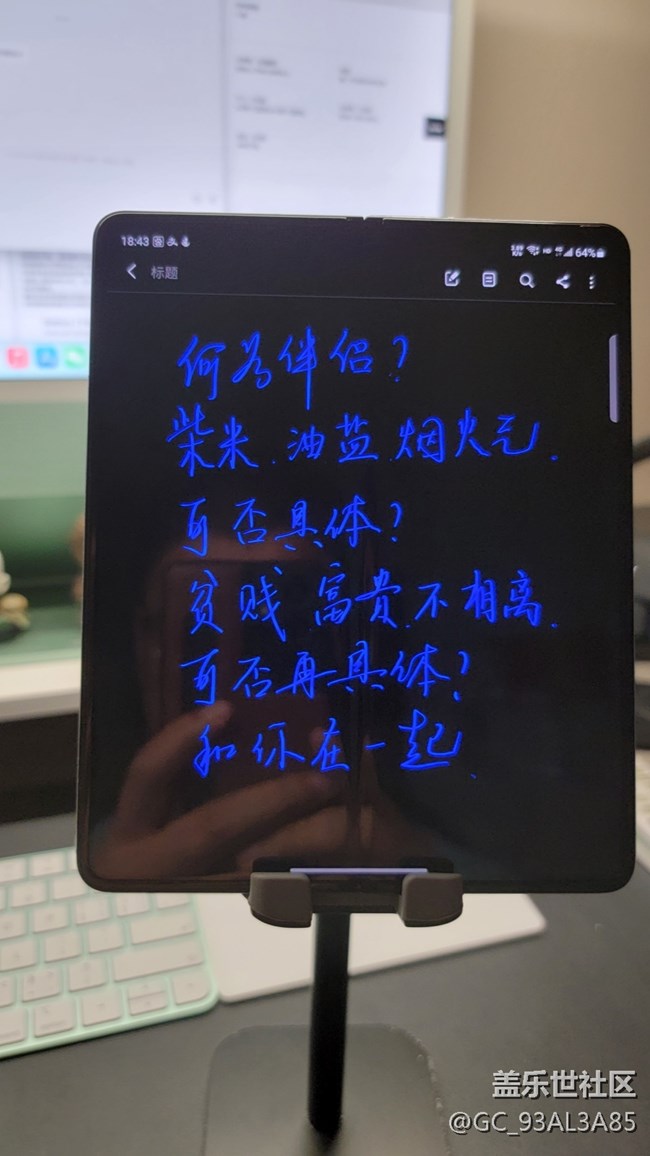 18:43
64%
标题
何为伴侣?
柴米.油盐.烟火气.
可否具体?
贫贱.富贵.不相离.
可否再具体?
和你在一起.
盖乐世社区
@GC_93AL3A85